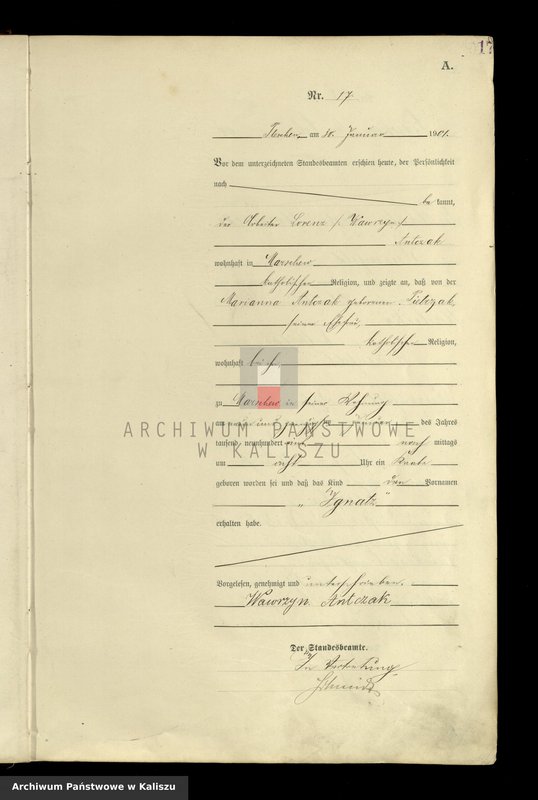 17
A.
Nr. 17.
Pleschen, am 10. Januar 1901.
Vor dem unterzeichneten Standesbeamten erschien heute, der Persönlichkeit
nach
be kannt,
der Arbeiter Lorenz (Wawrzyn)
Antczak
wohnhaft in Marschew
katholischer Religion, und zeigte an, daß von der
Marianna Antczak geborenen
seiner Ehefrau,
katholischer Religion,
wohnhaft bei ihm
zu Marschew in seiner Wohnung
am Januar des Jahres
tausend neunhundert eins nach mittags
um acht Uhr ein Knabe
geboren worden sei und daß das Kind den Vornamen
„Ignatz"
erhalten habe.
Vorgelesen, genehmigt und unterschrieben.
Wawrzyn Antczak
Der Standesbeamte.
In Vertretung
ARCHIWUM PAŃSTWOWE
W KALISZU
Archiwum Państwowe w Kaliszu